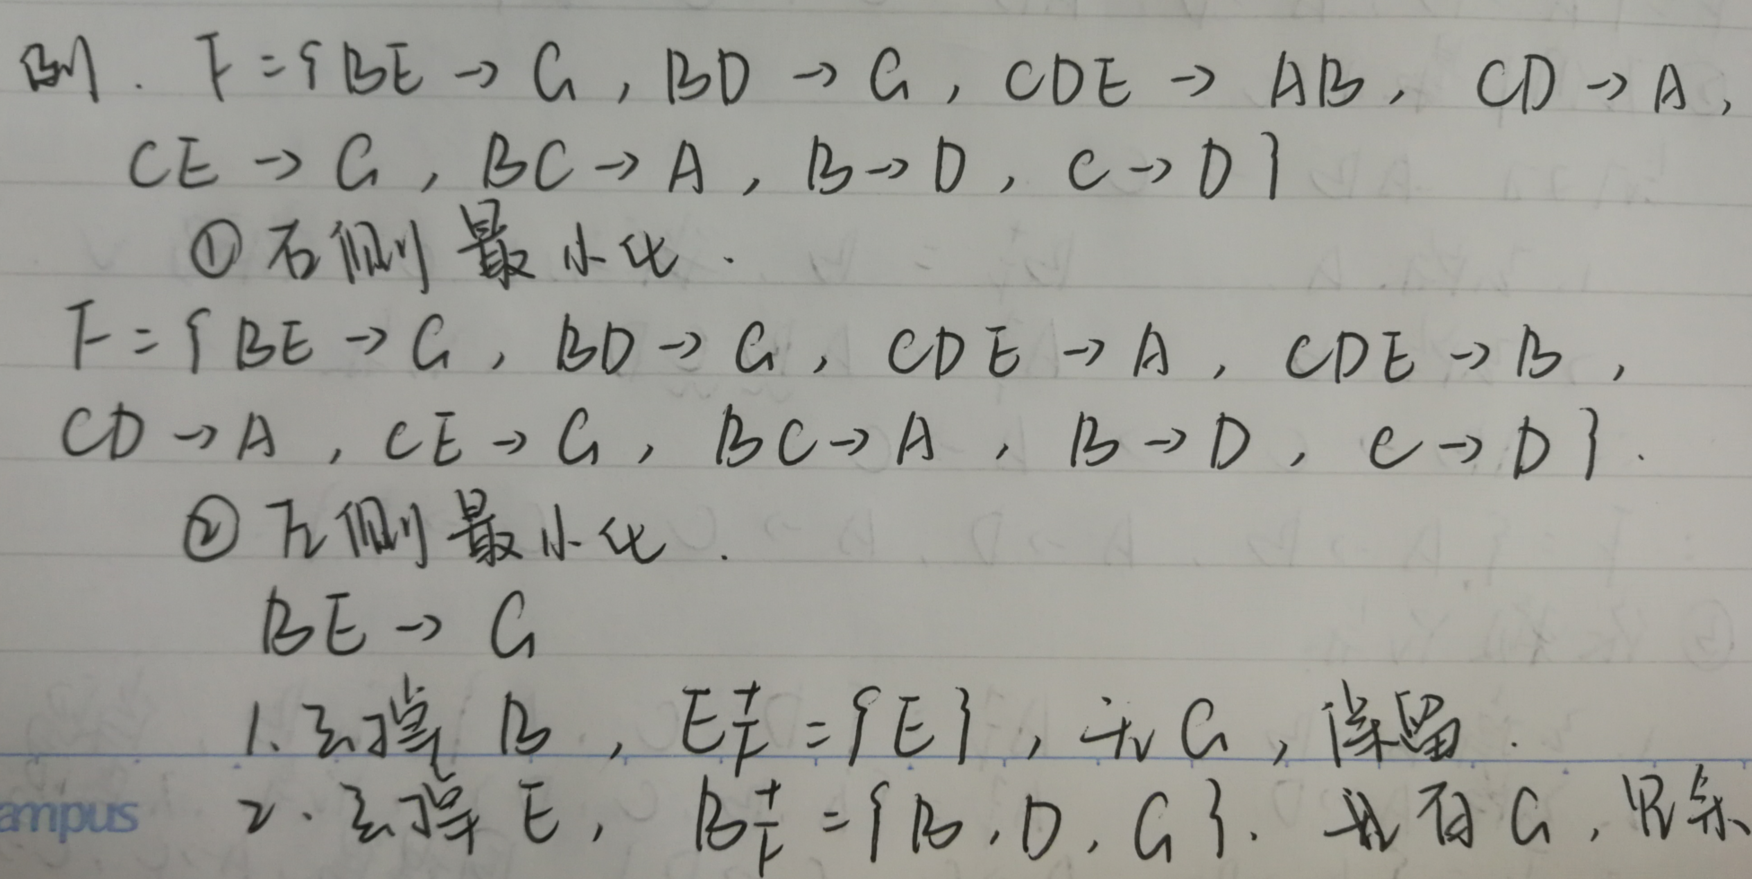 例. F={BE→G, BD→G, CDE→AB, CD→A,
CE→G, BC→A, B→D, C→D}
①右侧最小化.
F={BE→G, BD→G, CDE→A, CDE→B,
CD→A, CE→G, BC→A, B→D, C→D}.
②左侧最小化.
BE→G
1.去掉B, E_F^+={E}, 无G, 保留.
ampus
2.去掉E, B_F^+={B,D,G}. 有G, 冗余